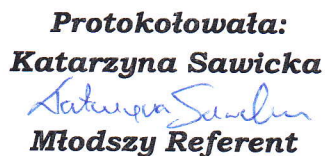 Protokołowała:
Katarzyna Sawicka
Katarzyna Sawicka
Młodszy Referent